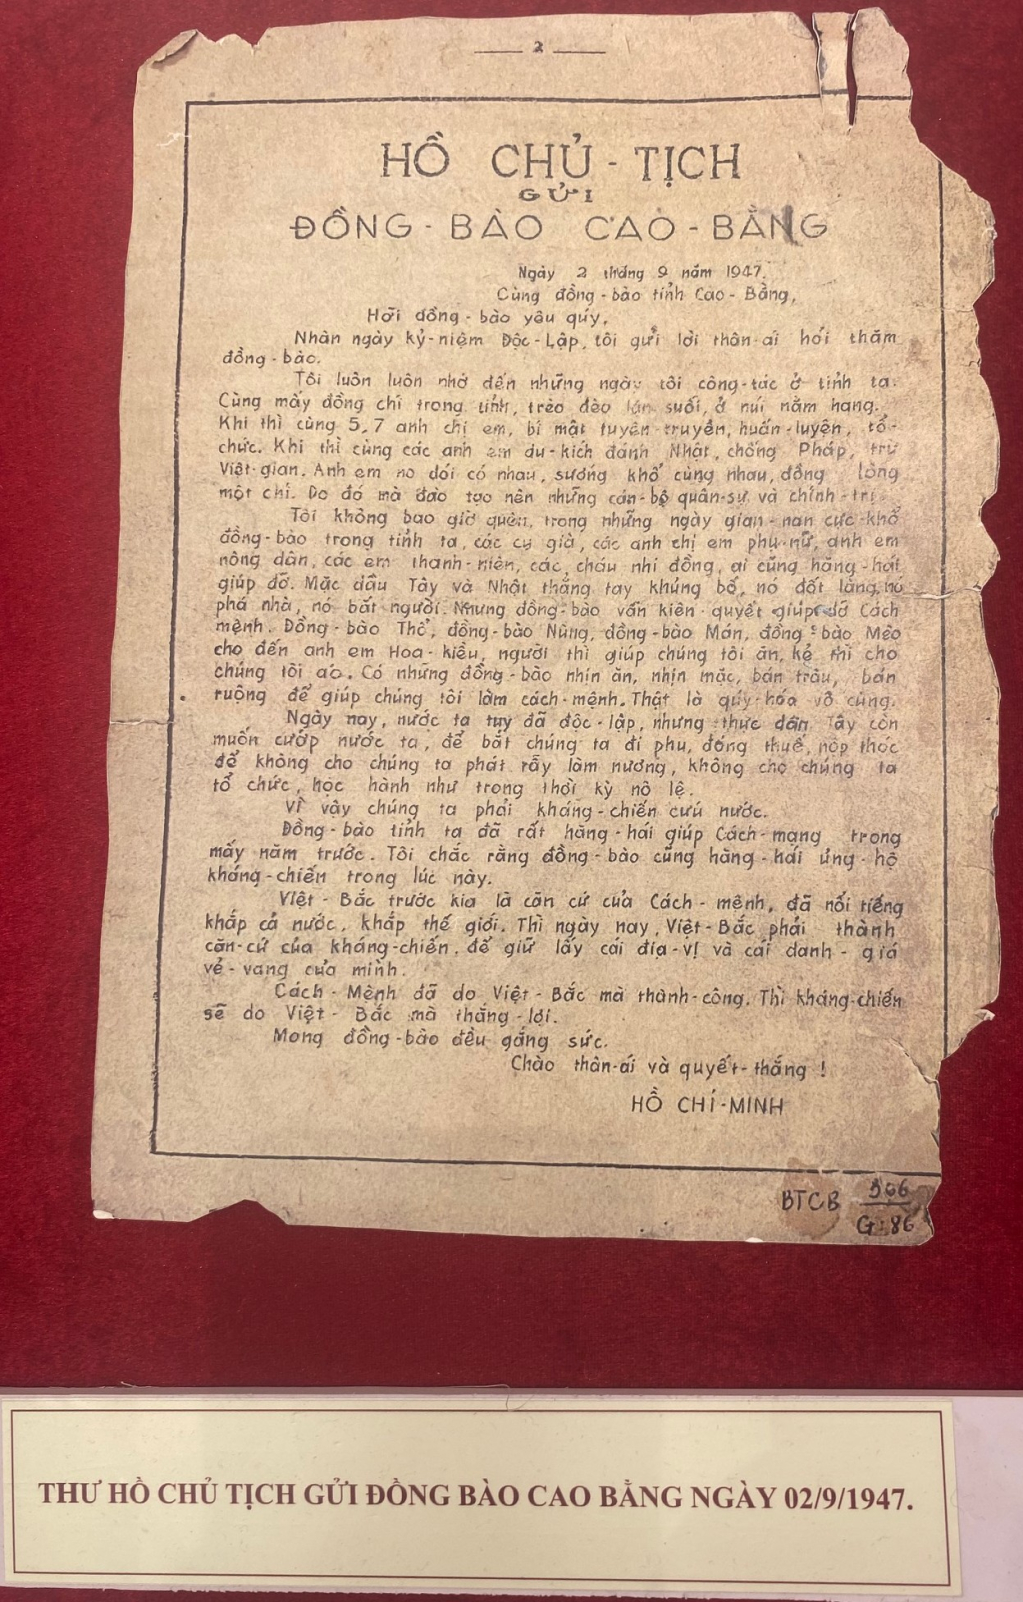 2
HỒ CHỦ-TỊCH
GỬI
ĐỒNG-BÀO CAO-BẰNG
Ngày 2 tháng 9 năm 1947.
Cùng đồng-bào tỉnh Cao-Bằng,
Hỡi đồng-bào yêu quý,
Nhân ngày kỷ-niệm Độc-Lập, tôi gửi lời thân-ái hỏi thăm
đồng-bào.
Tôi luôn luôn nhớ đến những ngày tôi công-tác ở tỉnh ta.
Cùng mấy đồng chí trong tỉnh, trèo đèo lặn suối, ở núi nằm hang.
Khi thì cùng 5,7 anh chị em, bí mật tuyên-truyền, huấn-luyện, tổ-
chức. Khi thì cùng các anh em du-kích đánh Nhật, chống Pháp, trừ
Việt-gian. Anh em no đói có nhau, sướng khổ cùng nhau, đồng lòng
một chí. Do đó mà đào tạo nên những cán-bộ quân-sự và chính-trị.
Tôi không bao giờ quên, trong những ngày gian-nan cực-khổ
đồng-bào trong tỉnh ta, các cụ già, các anh chị em phụ-nữ, anh em
nông dân, các em thanh-niên, các cháu nhi đồng, ai cũng hăng-hái
giúp đỡ. Mặc dầu Tây và Nhật thẳng tay khủng bố, nó đốt làng, nó
phá nhà, nó bắt người. Nhưng đồng-bào vẫn kiên-quyết giúp đỡ Cách
mệnh. Đồng-bào Thổ, đồng-bào Nùng, đồng-bào Mán, đồng-bào Mèo
cho đến anh em Hoa-kiều, người thì giúp chúng tôi ăn, kẻ thì cho
chúng tôi áo. Có những đồng-bào nhịn ăn, nhịn mặc, bán trâu, bán
ruộng để giúp chúng tôi làm cách-mệnh. Thật là quý-hóa vô cùng.
Ngày nay, nước ta tuy đã độc-lập, nhưng thực dân Tây còn
muốn cướp nước ta, để bắt chúng ta đi phu, đóng thuế, nộp thóc
để không cho chúng ta phát rẫy làm nương, không cho chúng ta
tổ chức, học hành như trong thời kỳ nô lệ.
Vì vậy chúng ta phải kháng-chiến cứu nước.
Đồng-bào tỉnh ta đã rất hăng-hái giúp Cách-mạng trong
mấy năm trước. Tôi chắc rằng đồng-bào cũng hăng-hái ủng-hộ
kháng-chiến trong lúc này.
Việt-Bắc trước kia là căn cứ của Cách-mệnh, đã nổi tiếng
khắp cả nước, khắp thế giới. Thì ngày nay, Việt-Bắc phải thành
căn-cứ của kháng-chiến, để giữ lấy cái địa-vị và cái danh-giá
vẻ-vang của mình.
Cách-Mệnh đã do Việt-Bắc mà thành-công. Thì kháng-chiến
sẽ do Việt-Bắc mà thắng-lợi.
Mong đồng-bào đều gắng sức.
Chào thân-ái và quyết-thắng!
HỒ CHÍ-MINH
BTCB 506
G:86
THƯ HỒ CHỦ TỊCH GỬI ĐỒNG BÀO CAO BẰNG NGÀY 02/9/1947.